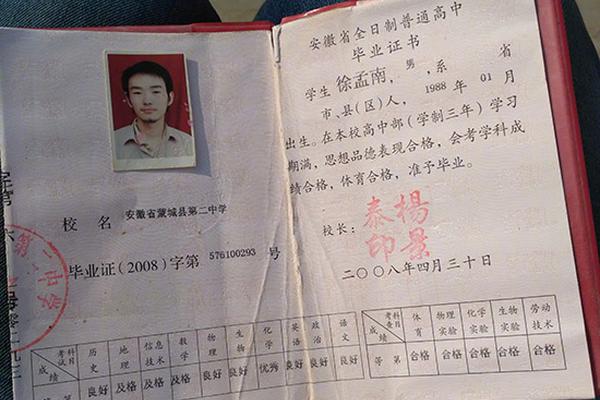 校名 安徽省蒙城县第二中学
毕业证(2008)字第 576100293 号
考试科目 历史 地理 信息技术 数学 物理 生物 化学 英语 政治 语文
成绩 良好 及格 及格 及格 良好 良好 优秀 良好 良好 良好
安徽省全日制普通高中
毕业证书
学生 徐孟南,男,系 省
市、县(区)人,1988年01月
出生。在本校高中部(学制三年)学习
期满,思想品德表现合格,会考学科成
绩合格,体育合格,准予毕业。
校长: 杨景泰印
二〇〇八年四月三十日
考查科目 体育 物理实验 化学实验 生物实验 劳动技术
成绩
等第 合格 合格 合格 合格 合格
第二中学